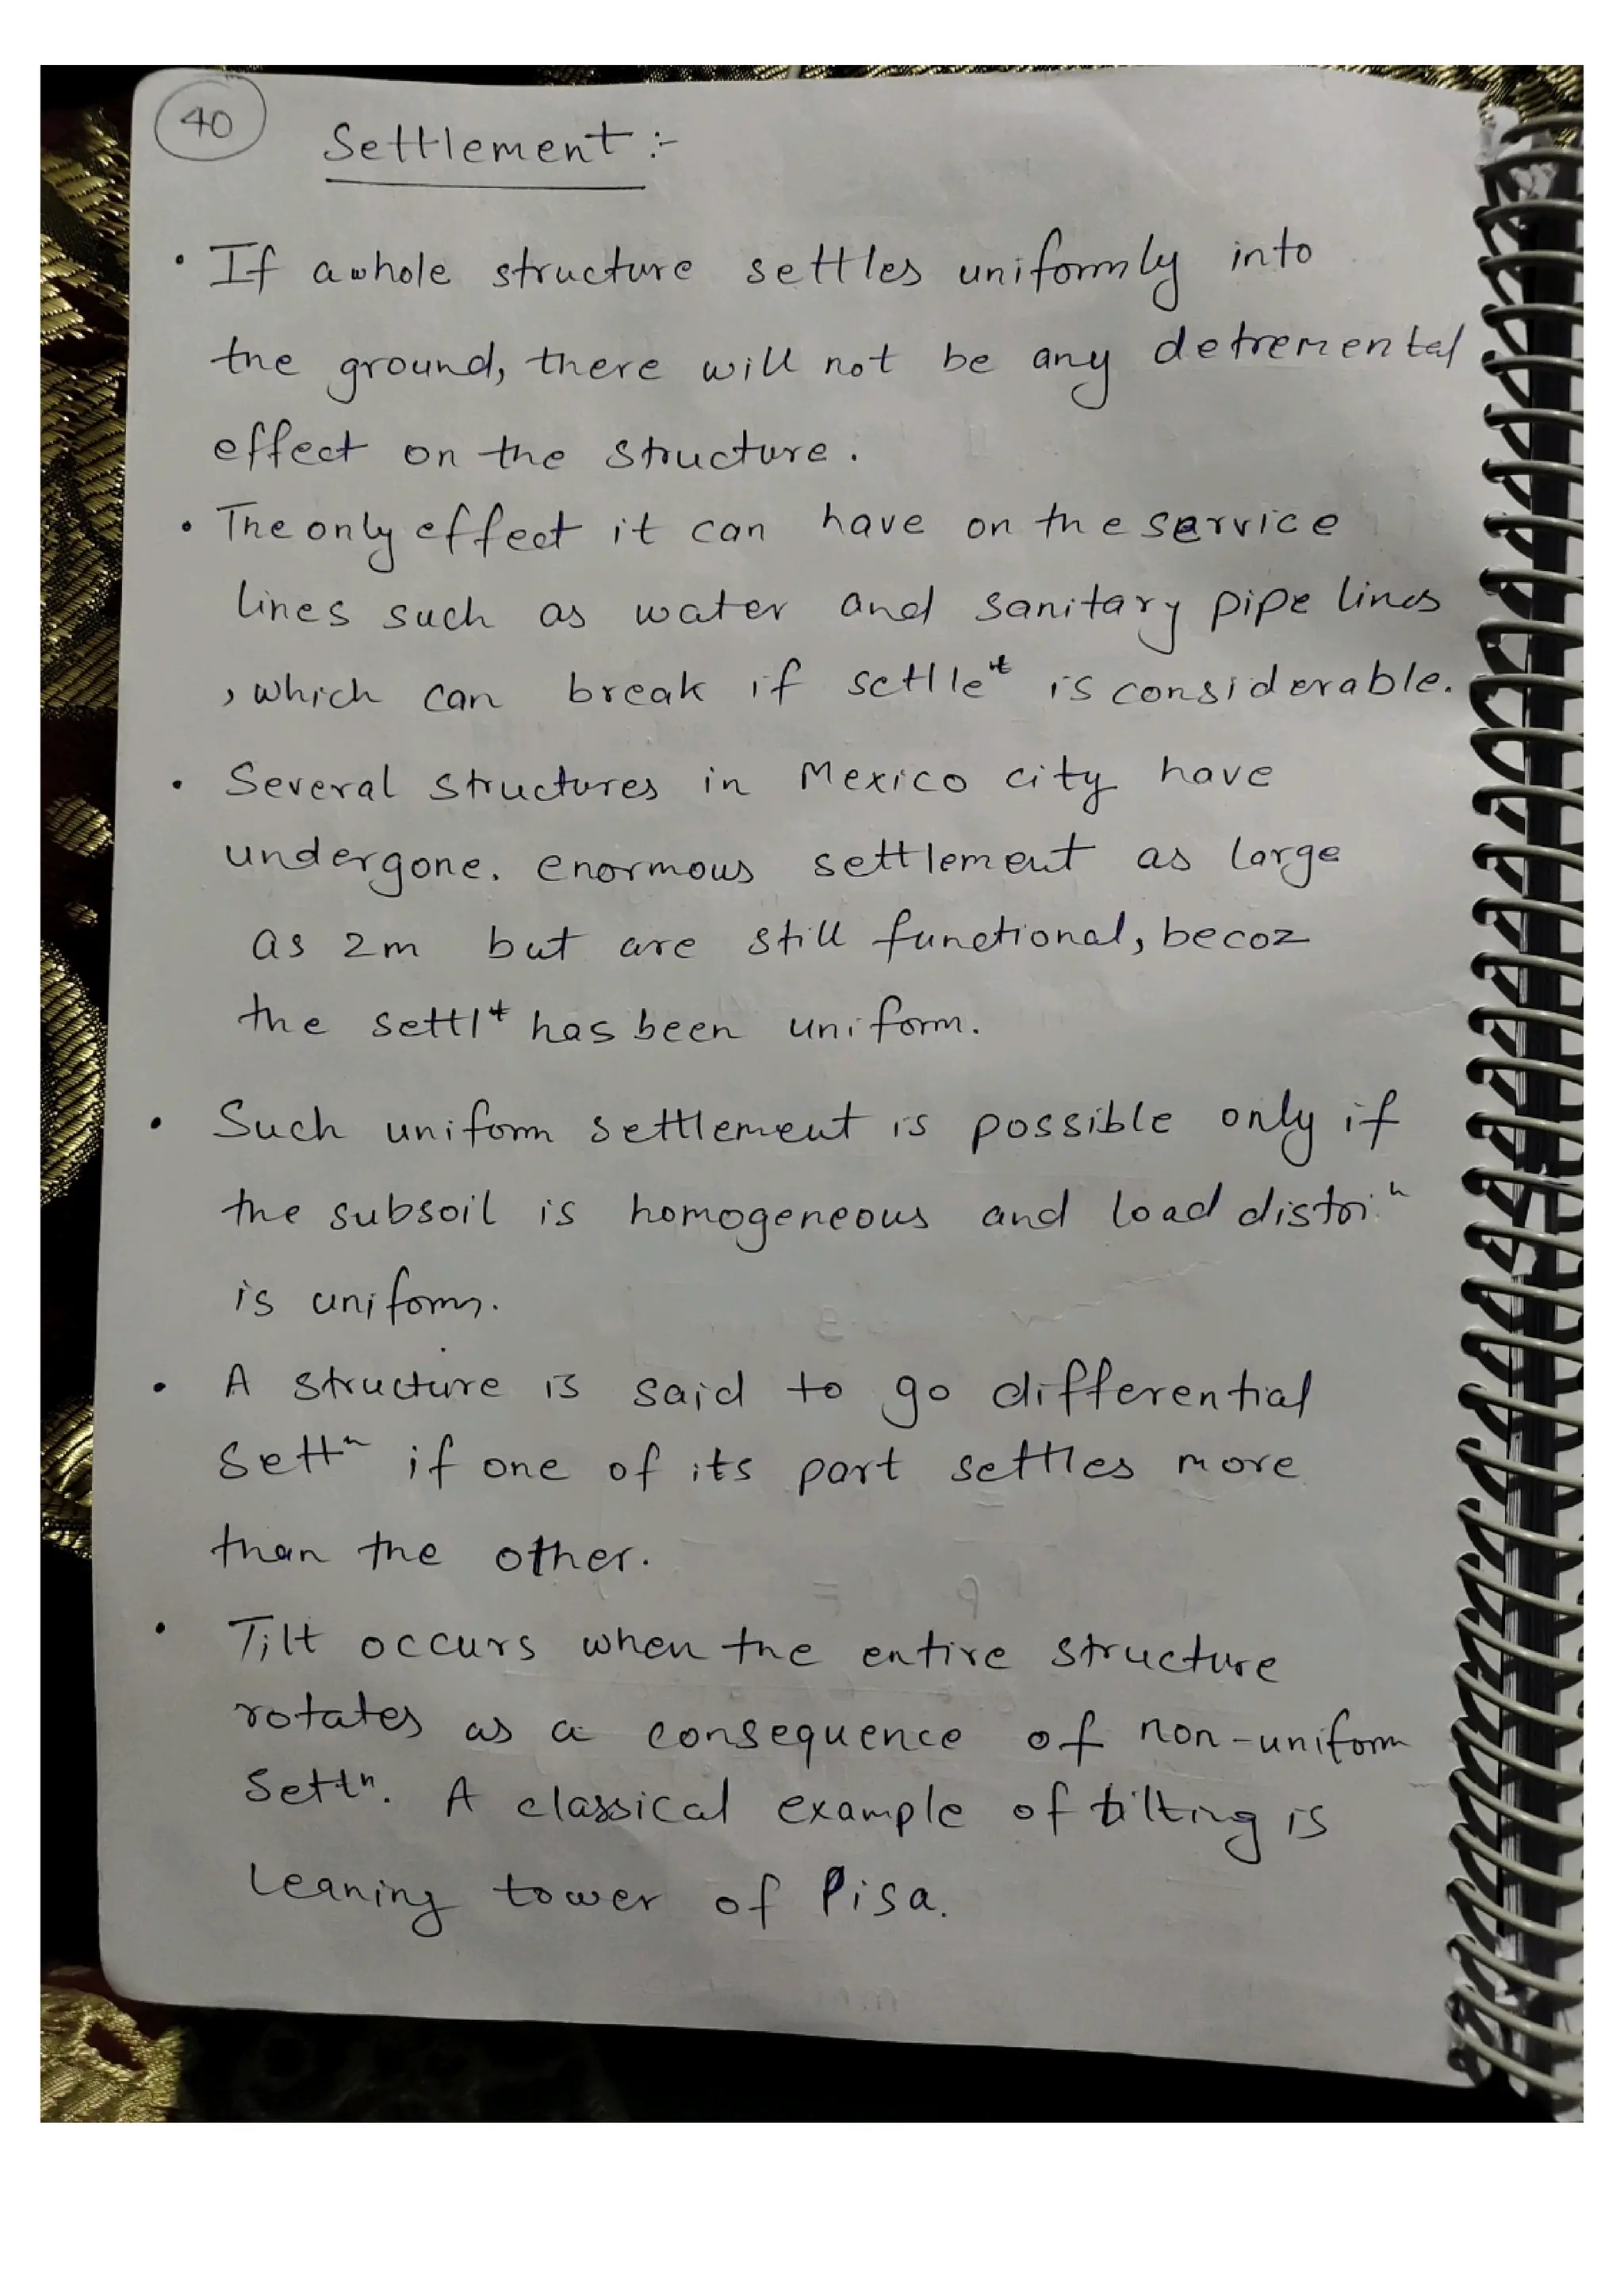 40
Settlement :-
• If a whole structure settles uniformly into
the ground, there will not be any detremental
effect on the structure.
• The only effect it can have on the service
lines such as water and sanitary pipe lines
, which can break if settleᵗ is considerable.
• Several structures in Mexico city have
undergone. enormous settlement as large
as 2m but are still functional, becoz
the settlᵗ has been uniform.
• Such uniform settlement is possible only if
the subsoil is homogeneous and load distriⁿ
is uniform.
• A structure is said to go differential
Settⁿ if one of its part settles more
than the other.
• Tilt occurs when the entire structure
rotates as a consequence of non-uniform
Settⁿ. A classical example of tilting is
Leaning tower of Pisa.